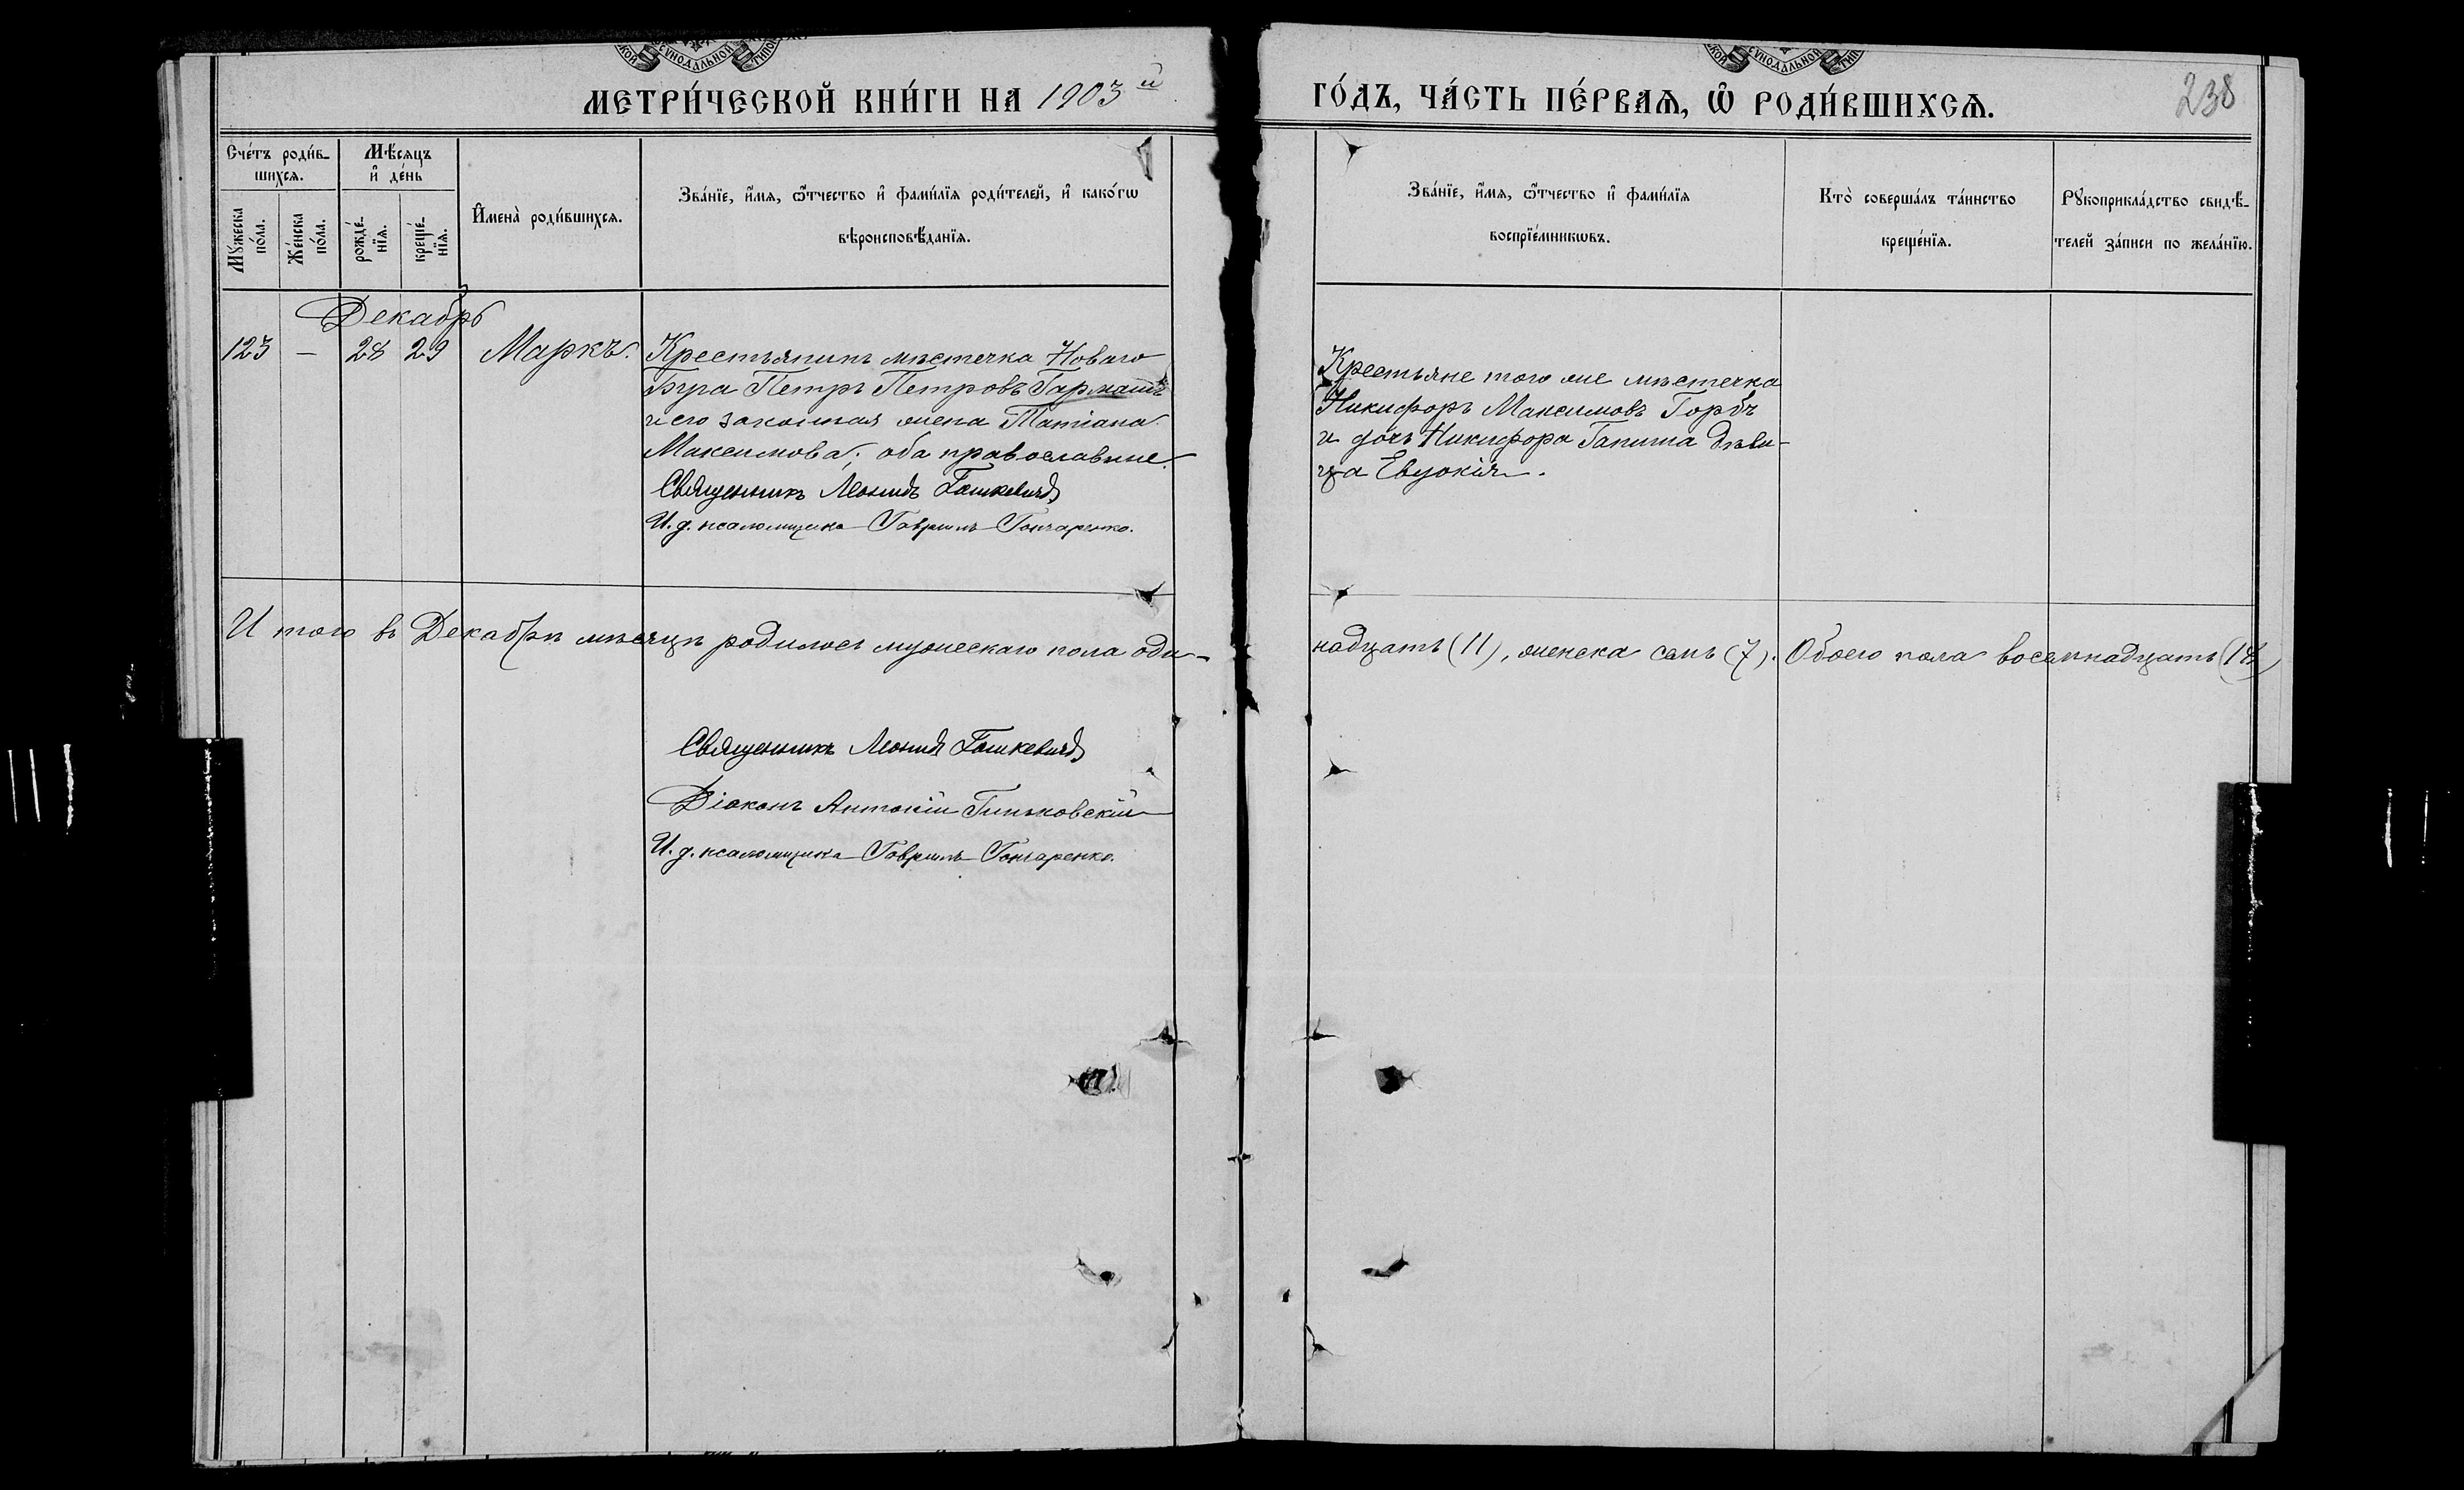 МЕТРИ́ЧЕСКОЙ КНИ́ГИ НА 1903й
ГО́ДЪ, ЧА́СТЬ ПЕ́РВАѦ, Ѿ РОДИ́ВШИХСѦ.
238
Сче́тъ роди́в-
шихсѧ.
Мѣ́сѧцъ
и҆ де́нь
Мꙋ́жеска
по́ла.
Же́нска
по́ла.
рожде́-
нїѧ.
креще́-
нїѧ.
И҆мена̀ роди́вшихсѧ.
Зва́нїе, и҆́мѧ, ѻ҆́тчество и҆ фами́лїѧ роди́телей, и҆ како́гѡ
вѣроисповѣ́данїѧ.
Зва́нїе, и҆́мѧ, ѻ҆́тчество и҆ фами́лїѧ
воспрїе́мникѡвъ.
Кто̀ соверша́лъ та́инство
креще́нїѧ.
Рꙋкоприкла́дство свидѣ́-
телей за́писи по жела́нїю.
Декабрь
123 — 28 29 Маркъ.
Крестьянинъ мѣстечка Новаго
Буга Петръ Петровъ Гармашъ
и его законная жена Татіана
Максимова; оба православные.
Священникъ Леонидъ
И. д. псаломщика Гавріилъ Гончаренко.
Крестьяне того же мѣстечка
Никифоръ Максимовъ Горбъ
и дочь Никифора дѣви-
ца Евдокія.
И того въ Декабрѣ мѣсяцѣ родилось мужескаго пола оди-
надцать (11), женска семь (7). Обоего пола восемнадцать (18)
Священникъ Леонидъ
Діаконъ Антоній
И. д. псаломщика Гавріилъ Гончаренко.